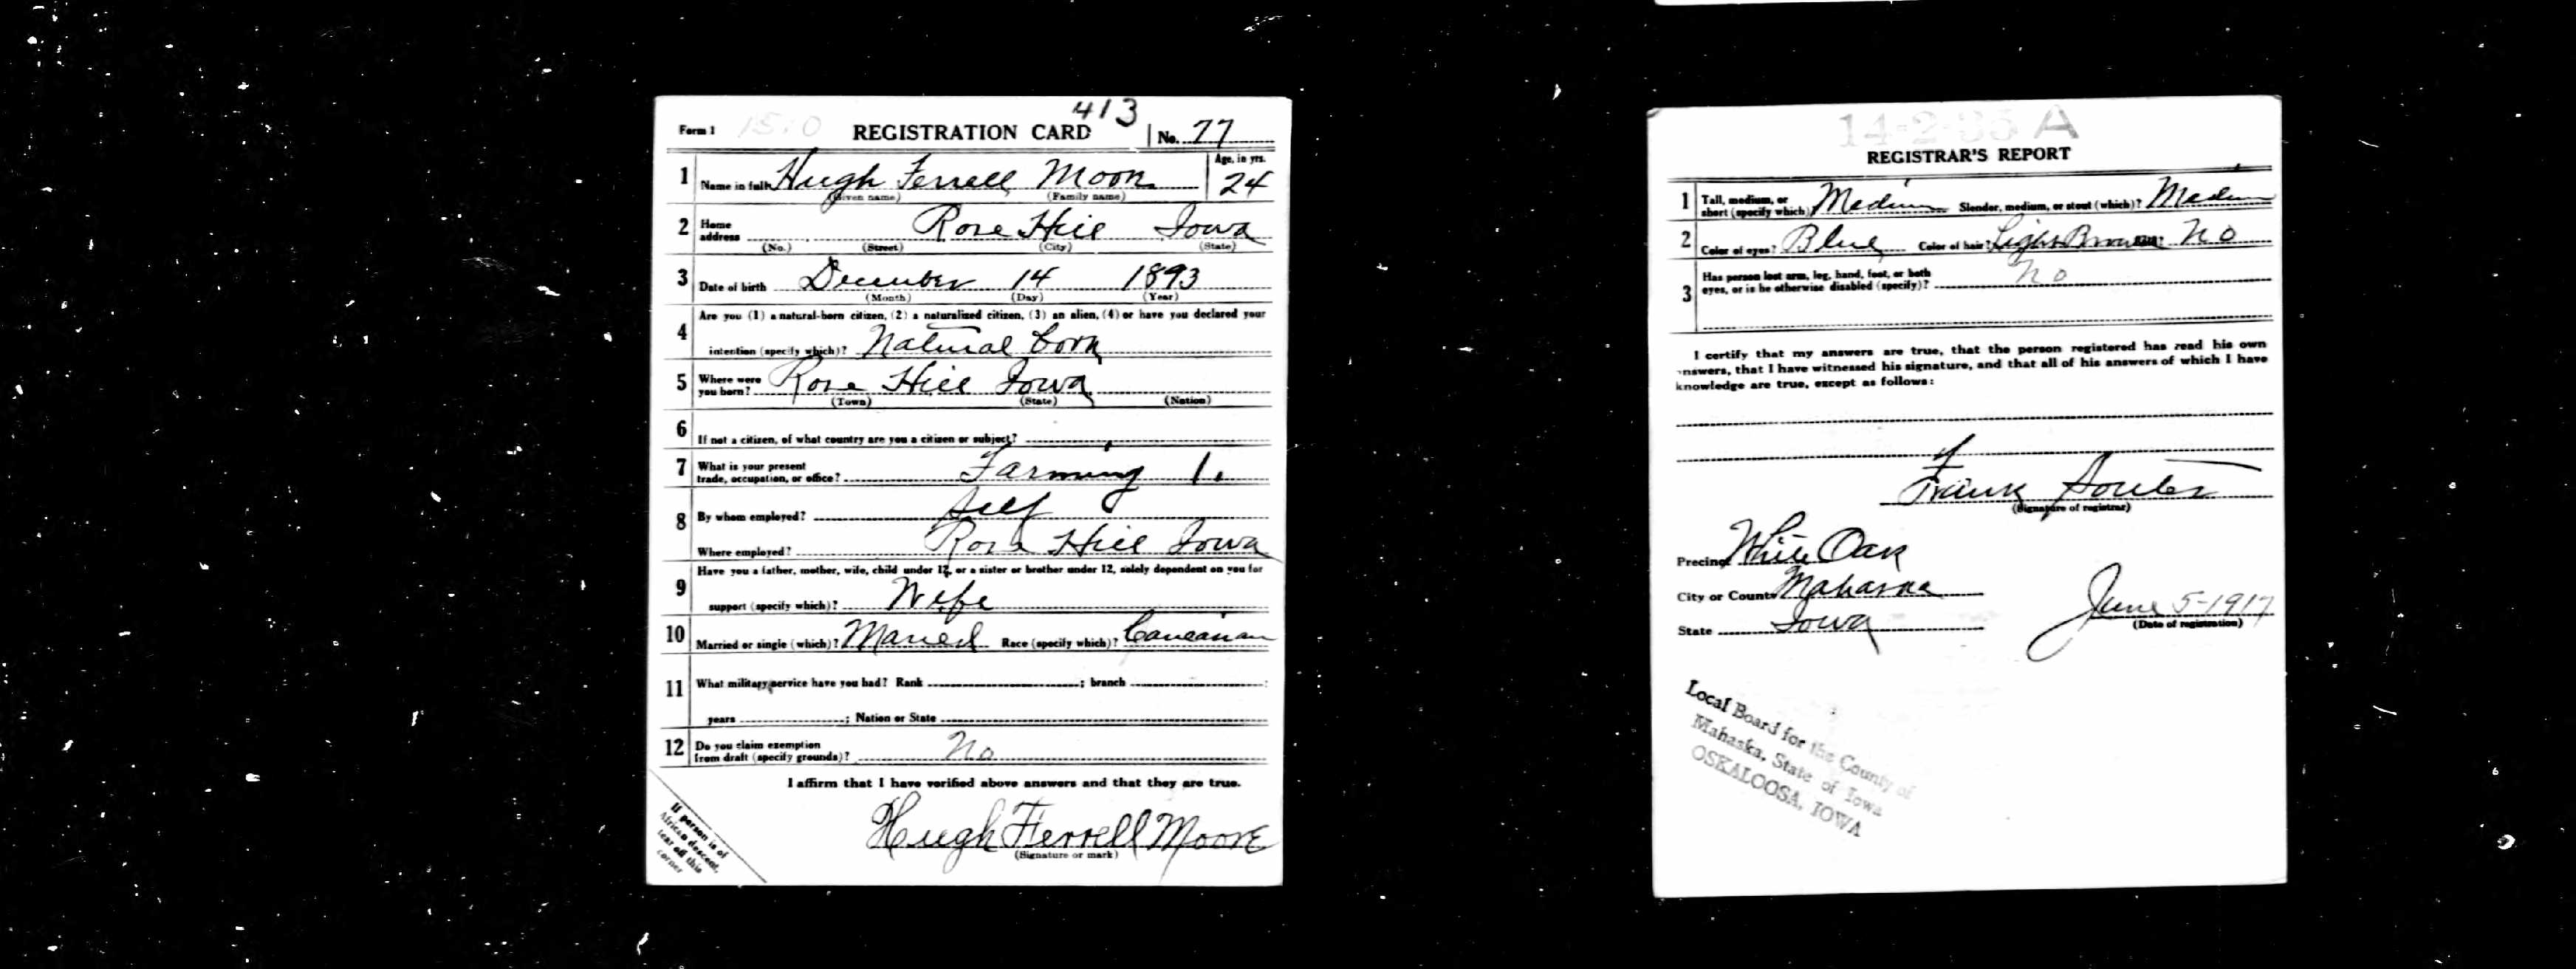 413
Form 1 REGISTRATION CARD No. 77
1 Name in full Hugh Ferrell Moore Age, in yrs. 24
(Given name) (Family name)
2 Home address Rose Hill Iowa
(No.) (Street) (City) (State)
3 Date of birth December 14 1893
(Month) (Day) (Year)
4 Are you (1) a natural-born citizen, (2) a naturalized citizen, (3) an alien, (4) or have you declared your
intention (specify which)? Natural born
5 Where were you born? Rose Hill Iowa
(Town) (State) (Nation)
6 If not a citizen, of what country are you a citizen or subject?
7 What is your present
trade, occupation, or office? Farming 1.
8 By whom employed? self
Where employed? Rose Hill Iowa
9 Have you a father, mother, wife, child under 12, or a sister or brother under 12, solely dependent on you for
support (specify which)? Wife
10 Married or single (which)? Maried Race (specify which)? Caucasian
11 What military service have you had? Rank ; branch ;
years ; Nation or State
12 Do you claim exemption
from draft (specify grounds)? No
I affirm that I have verified above answers and that they are true.
Hugh Ferrell Moore
(Signature or mark)
If person is of
African descent,
tear off this
corner
14-2-35 A
REGISTRAR'S REPORT
1 Tall, medium, or
short (specify which)? Medium Slender, medium, or stout (which)? Medium
2 Color of eyes? Blue Color of hair? Light Brown Bald? No
3 Has person lost arm, leg, hand, foot, or both
eyes, or is he otherwise disabled (specify)? No
I certify that my answers are true, that the person registered has read his own
answers, that I have witnessed his signature, and that all of his answers of which I have
knowledge are true, except as follows:
Frank
(Signature of registrar)
Precinct White Oak
City or County Mahaska
State Iowa
June 5-1917
(Date of registration)
Local Board for the County of
Mahaska, State of Iowa
OSKALOOSA, IOWA